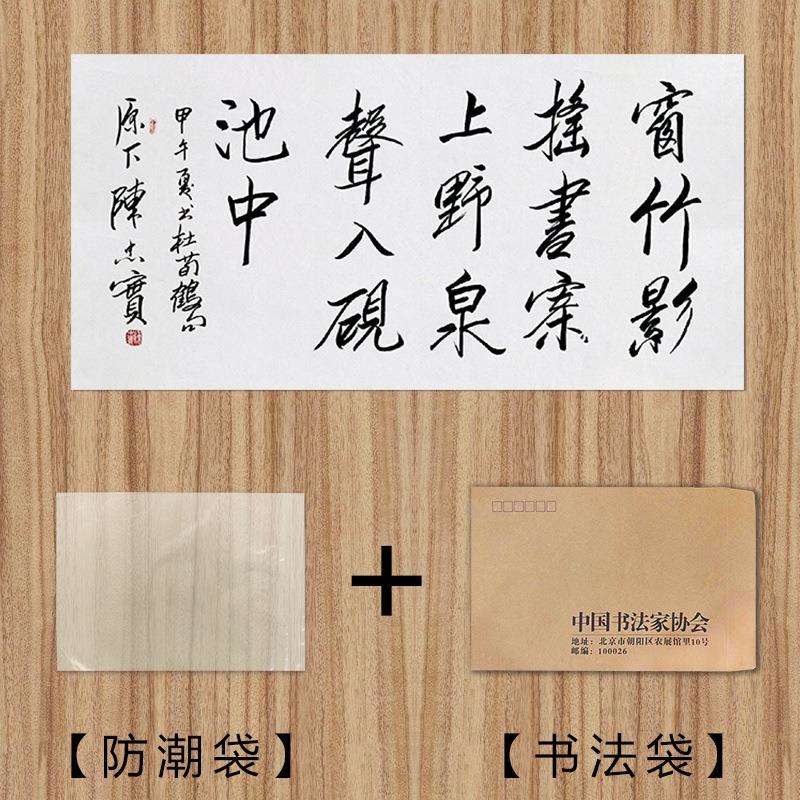 窗竹影
搖書案
上野泉
聲入硯
池中
甲午夏书杜荀鶴句
原下陳忠實
中国书法家协会
地址：北京市朝阳区农展馆里10号
邮编：100026
+
【防潮袋】
【书法袋】